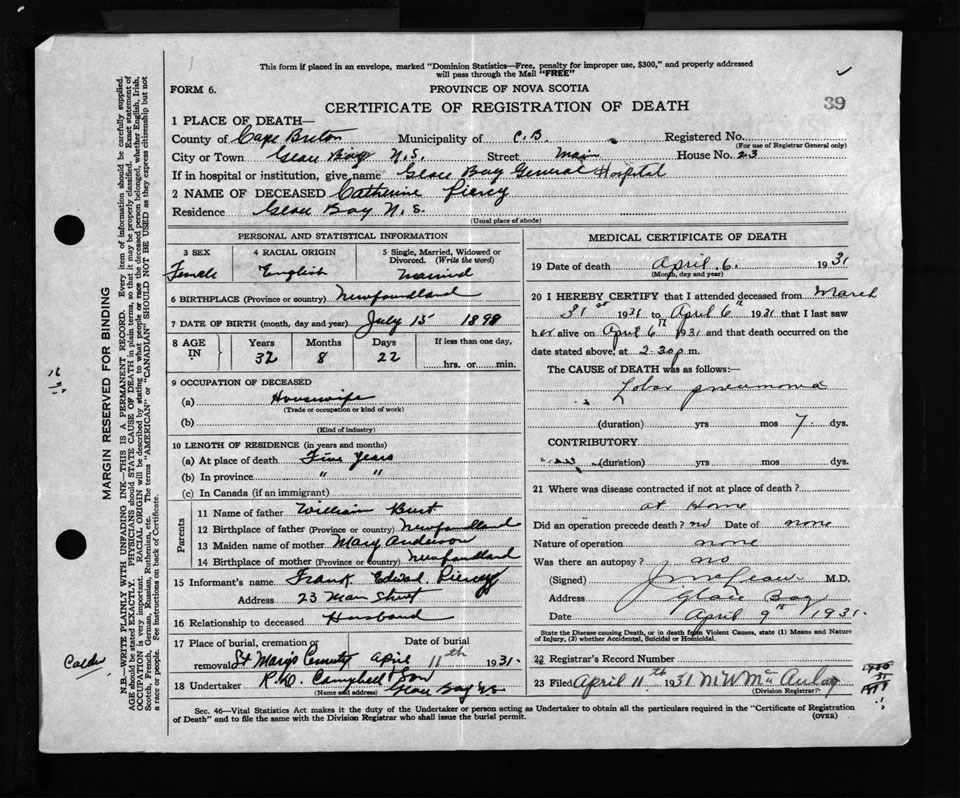 This form if placed in an envelope, marked "Dominion Statistics—Free, penalty for improper use, $300," and properly addressed
will pass through the Mail "FREE"
FORM 6.
PROVINCE OF NOVA SCOTIA
39
CERTIFICATE OF REGISTRATION OF DEATH
1 PLACE OF DEATH—
County of Cape Breton Municipality of C.B. Registered No.
(For use of Registrar General only)
City or Town Glace Bay N.S. Street Main House No. 23
If in hospital or institution, give name Glace Bay General Hospital
2 NAME OF DECEASED Catherine Piercy
Residence Glace Bay N.S.
(Usual place of abode)
PERSONAL AND STATISTICAL INFORMATION
3 SEX 4 RACIAL ORIGIN 5 Single, Married, Widowed or
Divorced. (Write the word)
Female English Married
6 BIRTHPLACE (Province or country) Newfoundland
7 DATE OF BIRTH (month, day and year) July 15 1898
8 AGE IN Years Months Days If less than one day,
32 8 22 hrs. or min.
9 OCCUPATION OF DECEASED
(a) Housewife
(Trade or occupation or kind of work)
(b)
(Kind of industry)
10 LENGTH OF RESIDENCE (in years and months)
(a) At place of death Five years
(b) In province " "
(c) In Canada (if an immigrant)
Parents
11 Name of father William Burt
12 Birthplace of father (Province or country) Newfoundland
13 Maiden name of mother Mary Anderson
14 Birthplace of mother (Province or country) Newfoundland
15 Informant's name Frank Edward Piercy
Address 23 Main Street
16 Relationship to deceased Husband
17 Place of burial, cremation or removal Date of burial
St Mary's April 11th 1931.
18 Undertaker Campbell Son
(Name and address) Glace Bay NS
MEDICAL CERTIFICATE OF DEATH
19 Date of death April 6. 1931
(Month, day and year)
20 I HEREBY CERTIFY that I attended deceased from March
31st 1931 to April 6th 1931 that I last saw
her alive on April 6th 1931 and that death occurred on the
date stated above, at 2.30 p.m.
The CAUSE of DEATH was as follows:—
Lobar pneumonia
(duration) yrs mos 7 dys.
CONTRIBUTORY
(duration) yrs mos dys.
21 Where was disease contracted if not at place of death?
at Home
Did an operation precede death? no Date of none
Nature of operation none
Was there an autopsy? no
(Signed) M.D.
Address Glace Bay
Date April 9th 1931.
State the Disease causing Death, or in death from Violent Causes, state (1) Means and Nature
of Injury, (2) whether Accidental, Suicidal or Homicidal.
22 Registrar's Record Number
23 Filed April 11th 1931 M W McAulay
(Division Registrar)
Sec. 46—Vital Statistics Act makes it the duty of the Undertaker or person acting as Undertaker to obtain all the particulars required in the "Certificate of Registration
of Death" and to file the same with the Division Registrar who shall issue the burial permit.
(OVER)
MARGIN RESERVED FOR BINDING
N.B.—WRITE PLAINLY WITH UNFADING INK—THIS IS A PERMANENT RECORD. Every item of information should be carefully supplied.
AGE should be stated EXACTLY. PHYSICIANS should STATE CAUSE OF DEATH in plain terms, so that it may be properly classified. Exact statement of
OCCUPATION is very important. RACIAL ORIGIN will be described by stating to what people or race the deceased person belonged, whether English, Irish,
Scotch, French, German, Russian, Ruthenian, etc. The terms "AMERICAN" or "CANADIAN" SHOULD NOT BE USED as they express citizenship but not
a race or people. See instructions on back of Certificate.